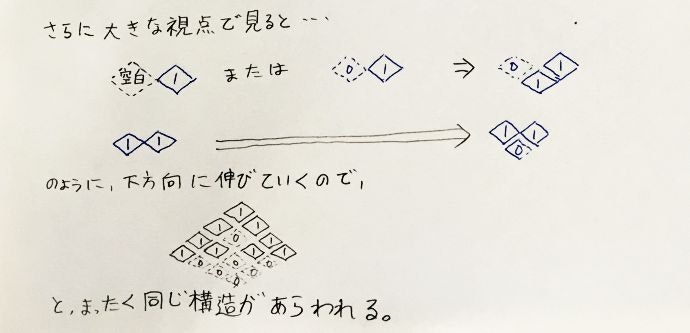 さらに大きな視点で見ると…
空白 1 または 0 1 ⇒ 0 1 1
1 1 ⇒ 1 1 0
のように、下方向に伸びていくので、
1
1 1
1 0 1
1 1 1 1
と、まったく同じ構造があらわれる。